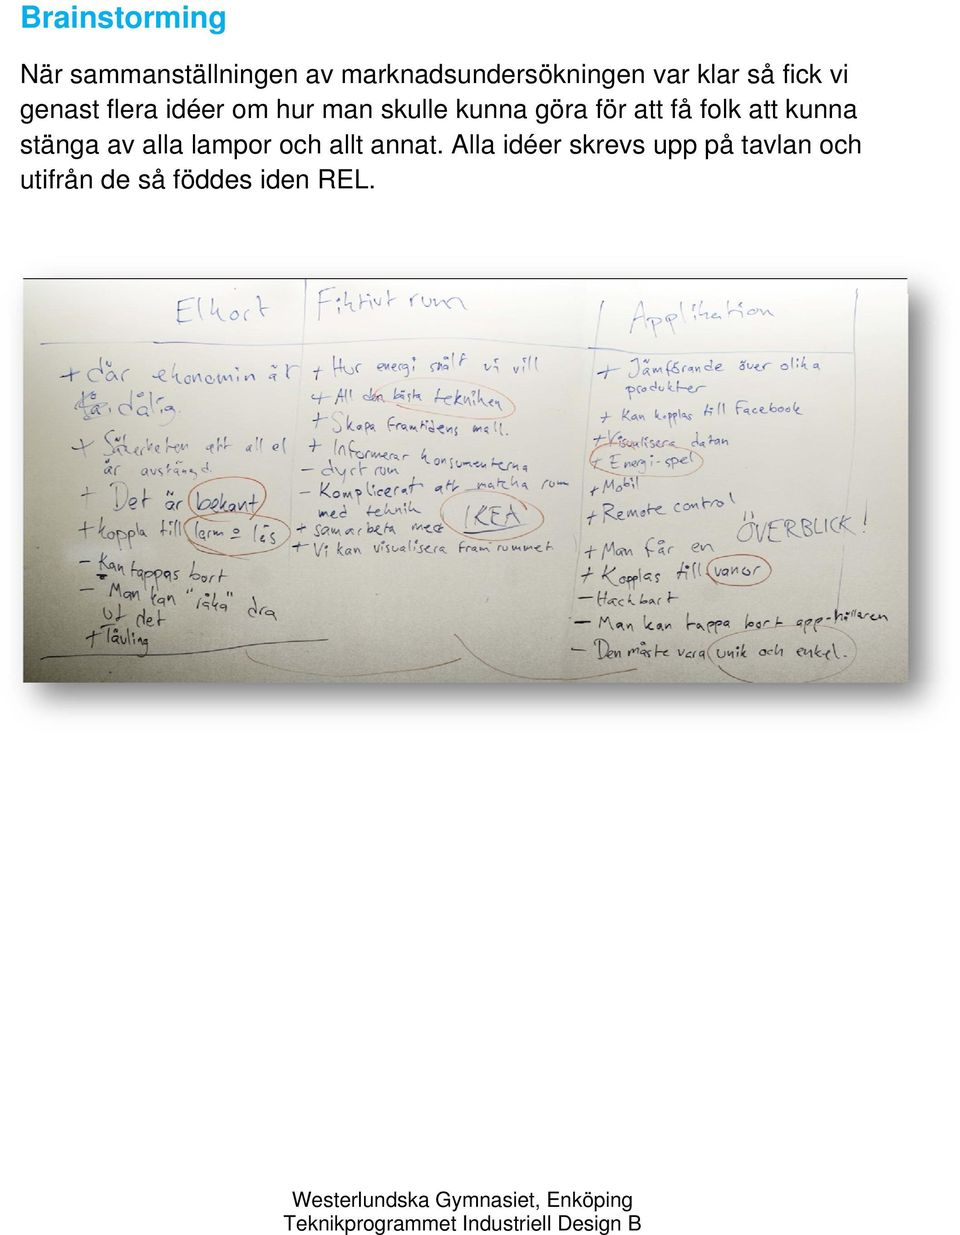 Brainstorming
När sammanställningen av marknadsundersökningen var klar så fick vi
genast flera idéer om hur man skulle kunna göra för att få folk att kunna
stänga av alla lampor och allt annat. Alla idéer skrevs upp på tavlan och
utifrån de så föddes iden REL.
Elkort
+ där ekonomin är
dålig.
+ Säkerheten att all el
är avstängd.
+ Det är bekant
+ koppla till larm o lås
- Kan tappas bort
- Man kan "råka" dra
ut det
+ Tävling
Fiktivt rum
+ Hur energi snålt vi vill
+ All den bästa tekniken
+ Skapa framtidens mall.
+ Informerar konsumenterna
- dyrt rum
- Komplicerat att matcha rum
med teknik
+ samarbeta med IKEA
+ Vi kan visualisera fram rummet
Applikation
+ Jämförande över olika
produkter
+ Kan kopplas till Facebook
+ Visualisera datan
+ Energi-spel
+ Mobil
+ Remote control
+ Man får en ÖVERBLICK!
+ Kopplas till vanor
- Hackbart
- Man kan tappa bort app-hållaren
- Den måste vara unik och enkel.
Westerlundska Gymnasiet, Enköping
Teknikprogrammet Industriell Design B